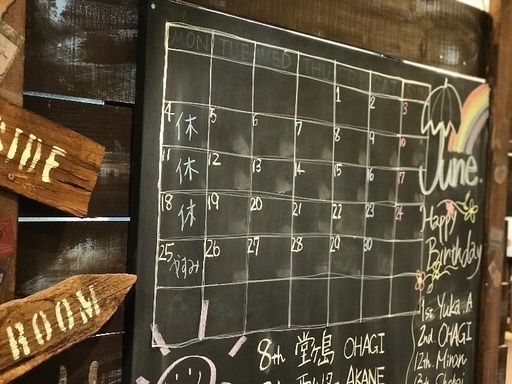 SIDE
ROOM
MON TUE WED THU FRI SAT SUN
1 2 3
4 休 5 6 7 8 9 10
11 休 12 13 14 15 16 17
18 休 19 20 21 22 23 24
25 やすみ 26 27 28 29 30
June.
Happy
Birthday
1st Yuka.A
2nd OHAGI
12th Minon
8th 堂ヶ島 OHAGI
AKANE